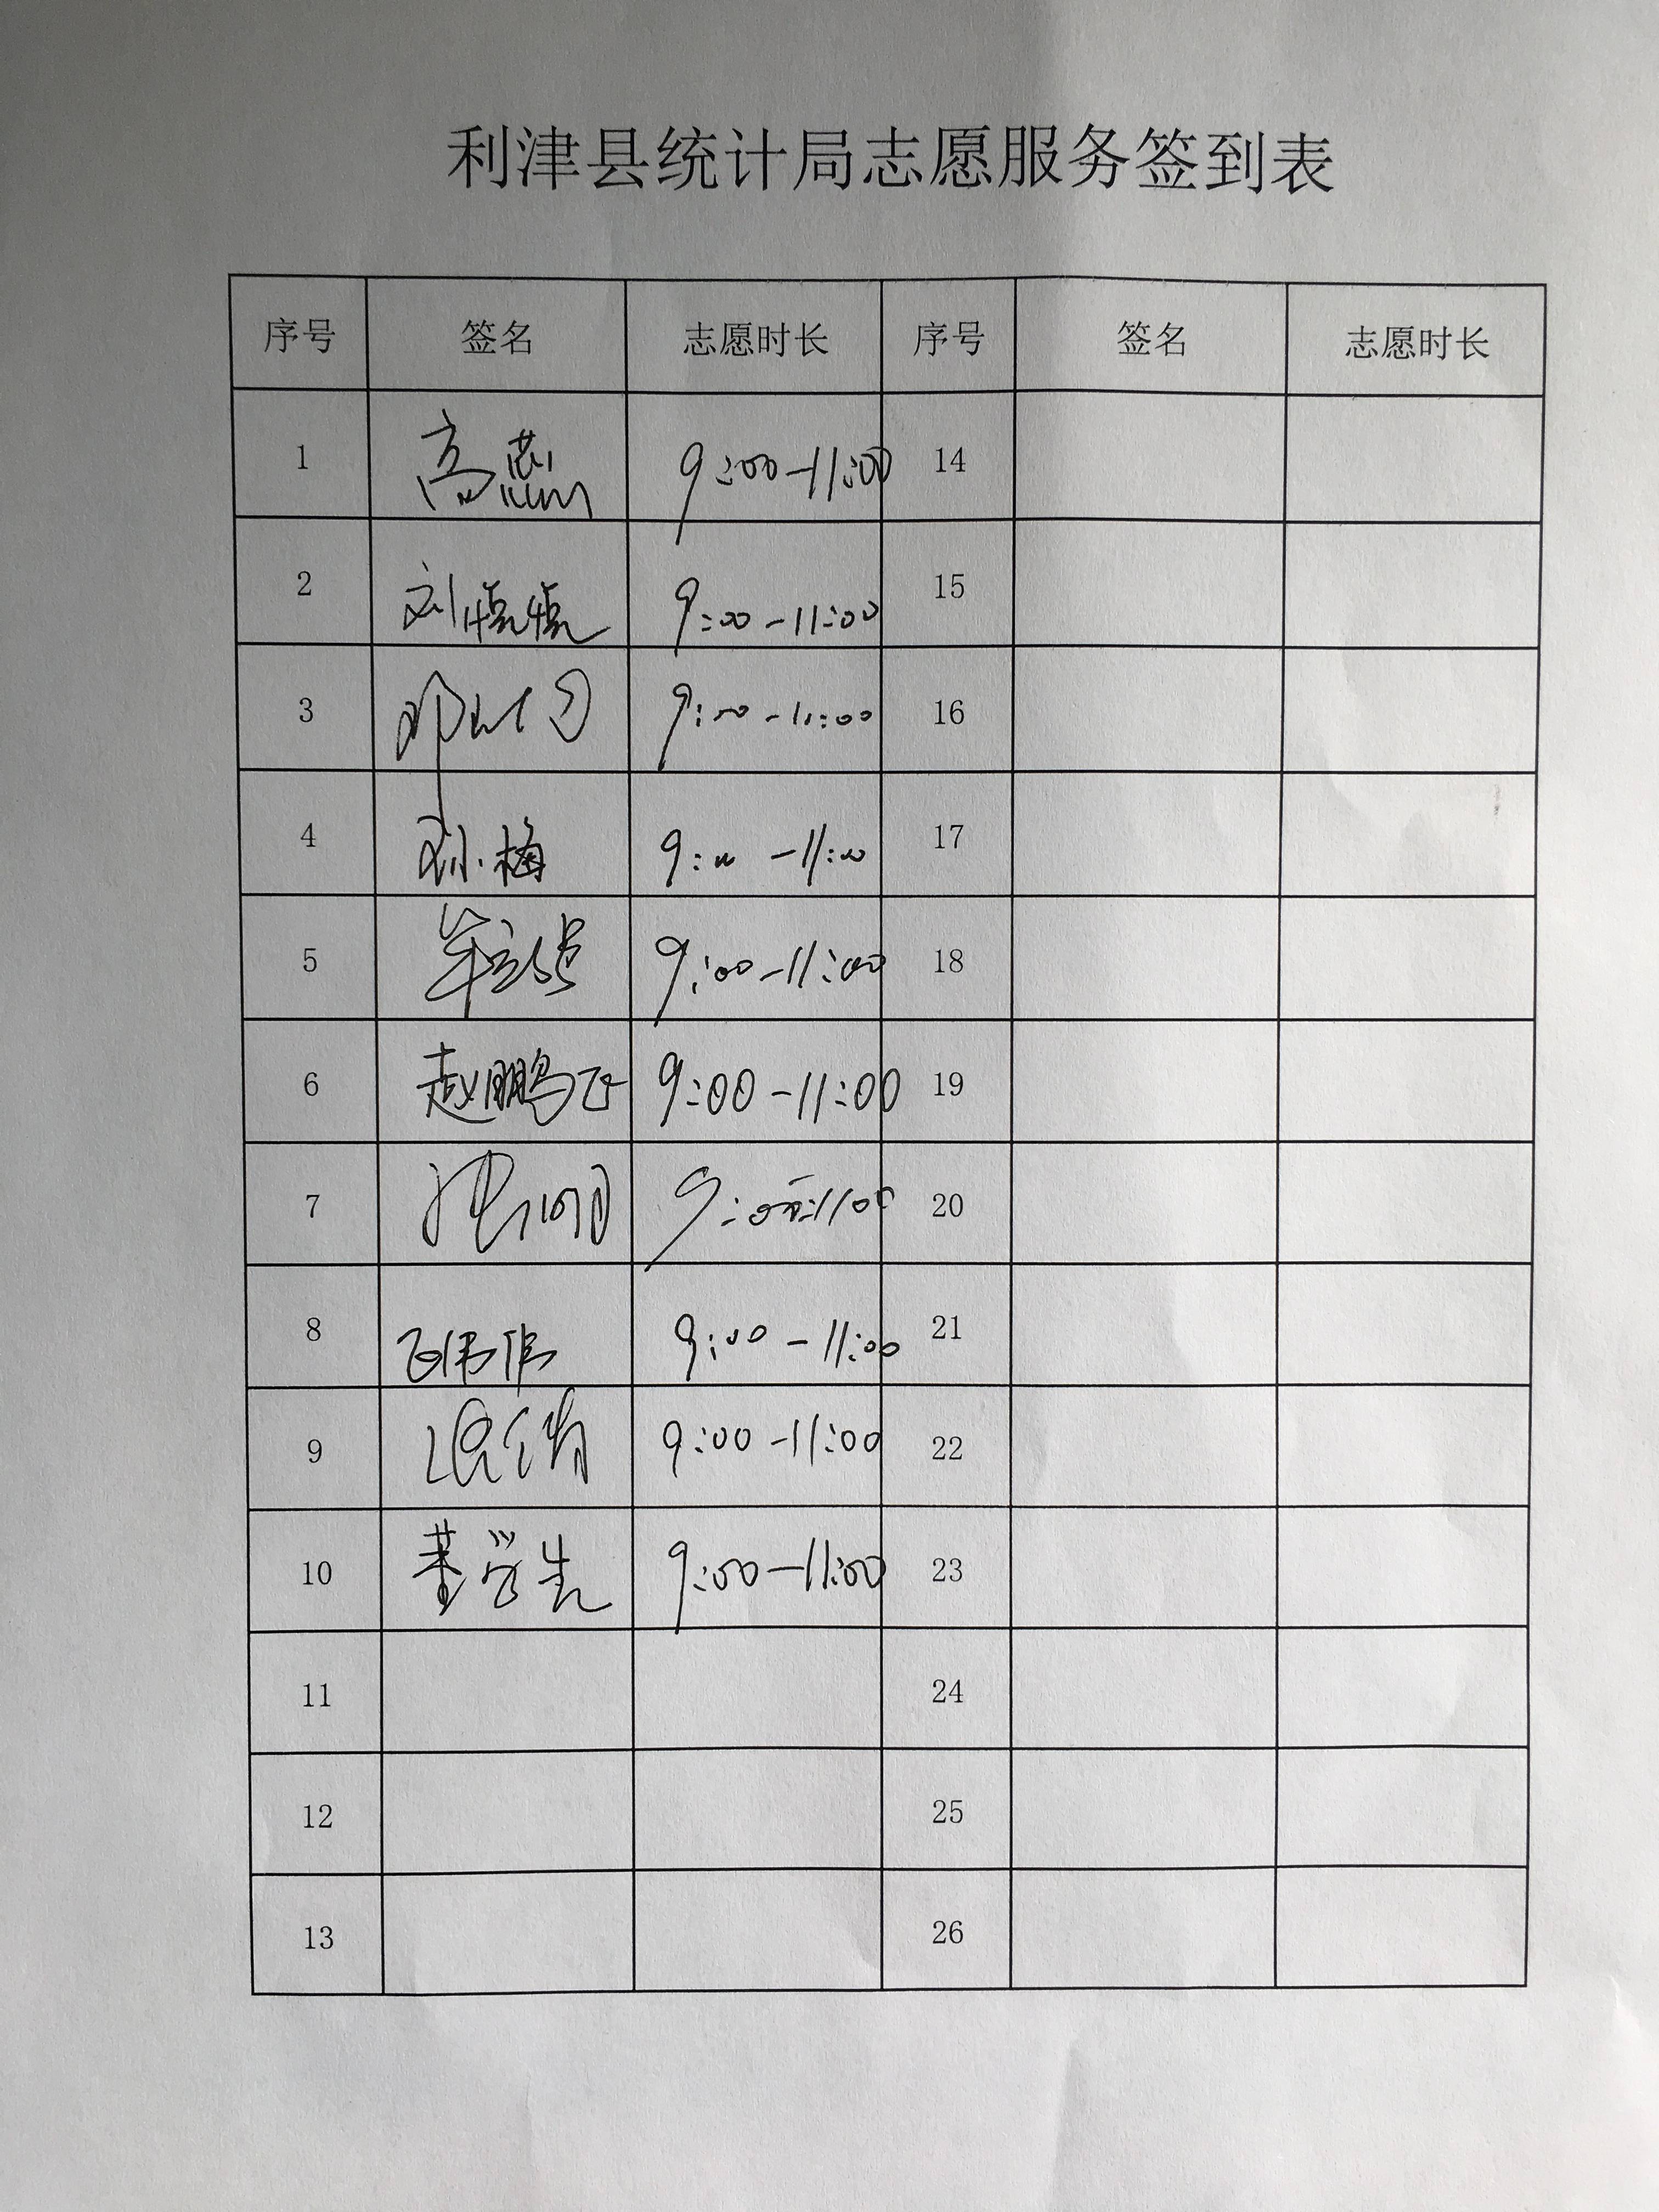 利津县统计局志愿服务签到表
序号 签名 志愿时长 序号 签名 志愿时长
1 高燕 9:00-11:00 14
2 刘慎慎 9:00-11:00 15
3 9:00-11:00 16
4 孙梅 9:00-11:00 17
5 9:00-11:00 18
6 赵鹏飞 9:00-11:00 19
7 20
8 9:00-11:00 21
9 9:00-11:00 22
10 董学生 9:00-11:00 23
11 24
12 25
13 26